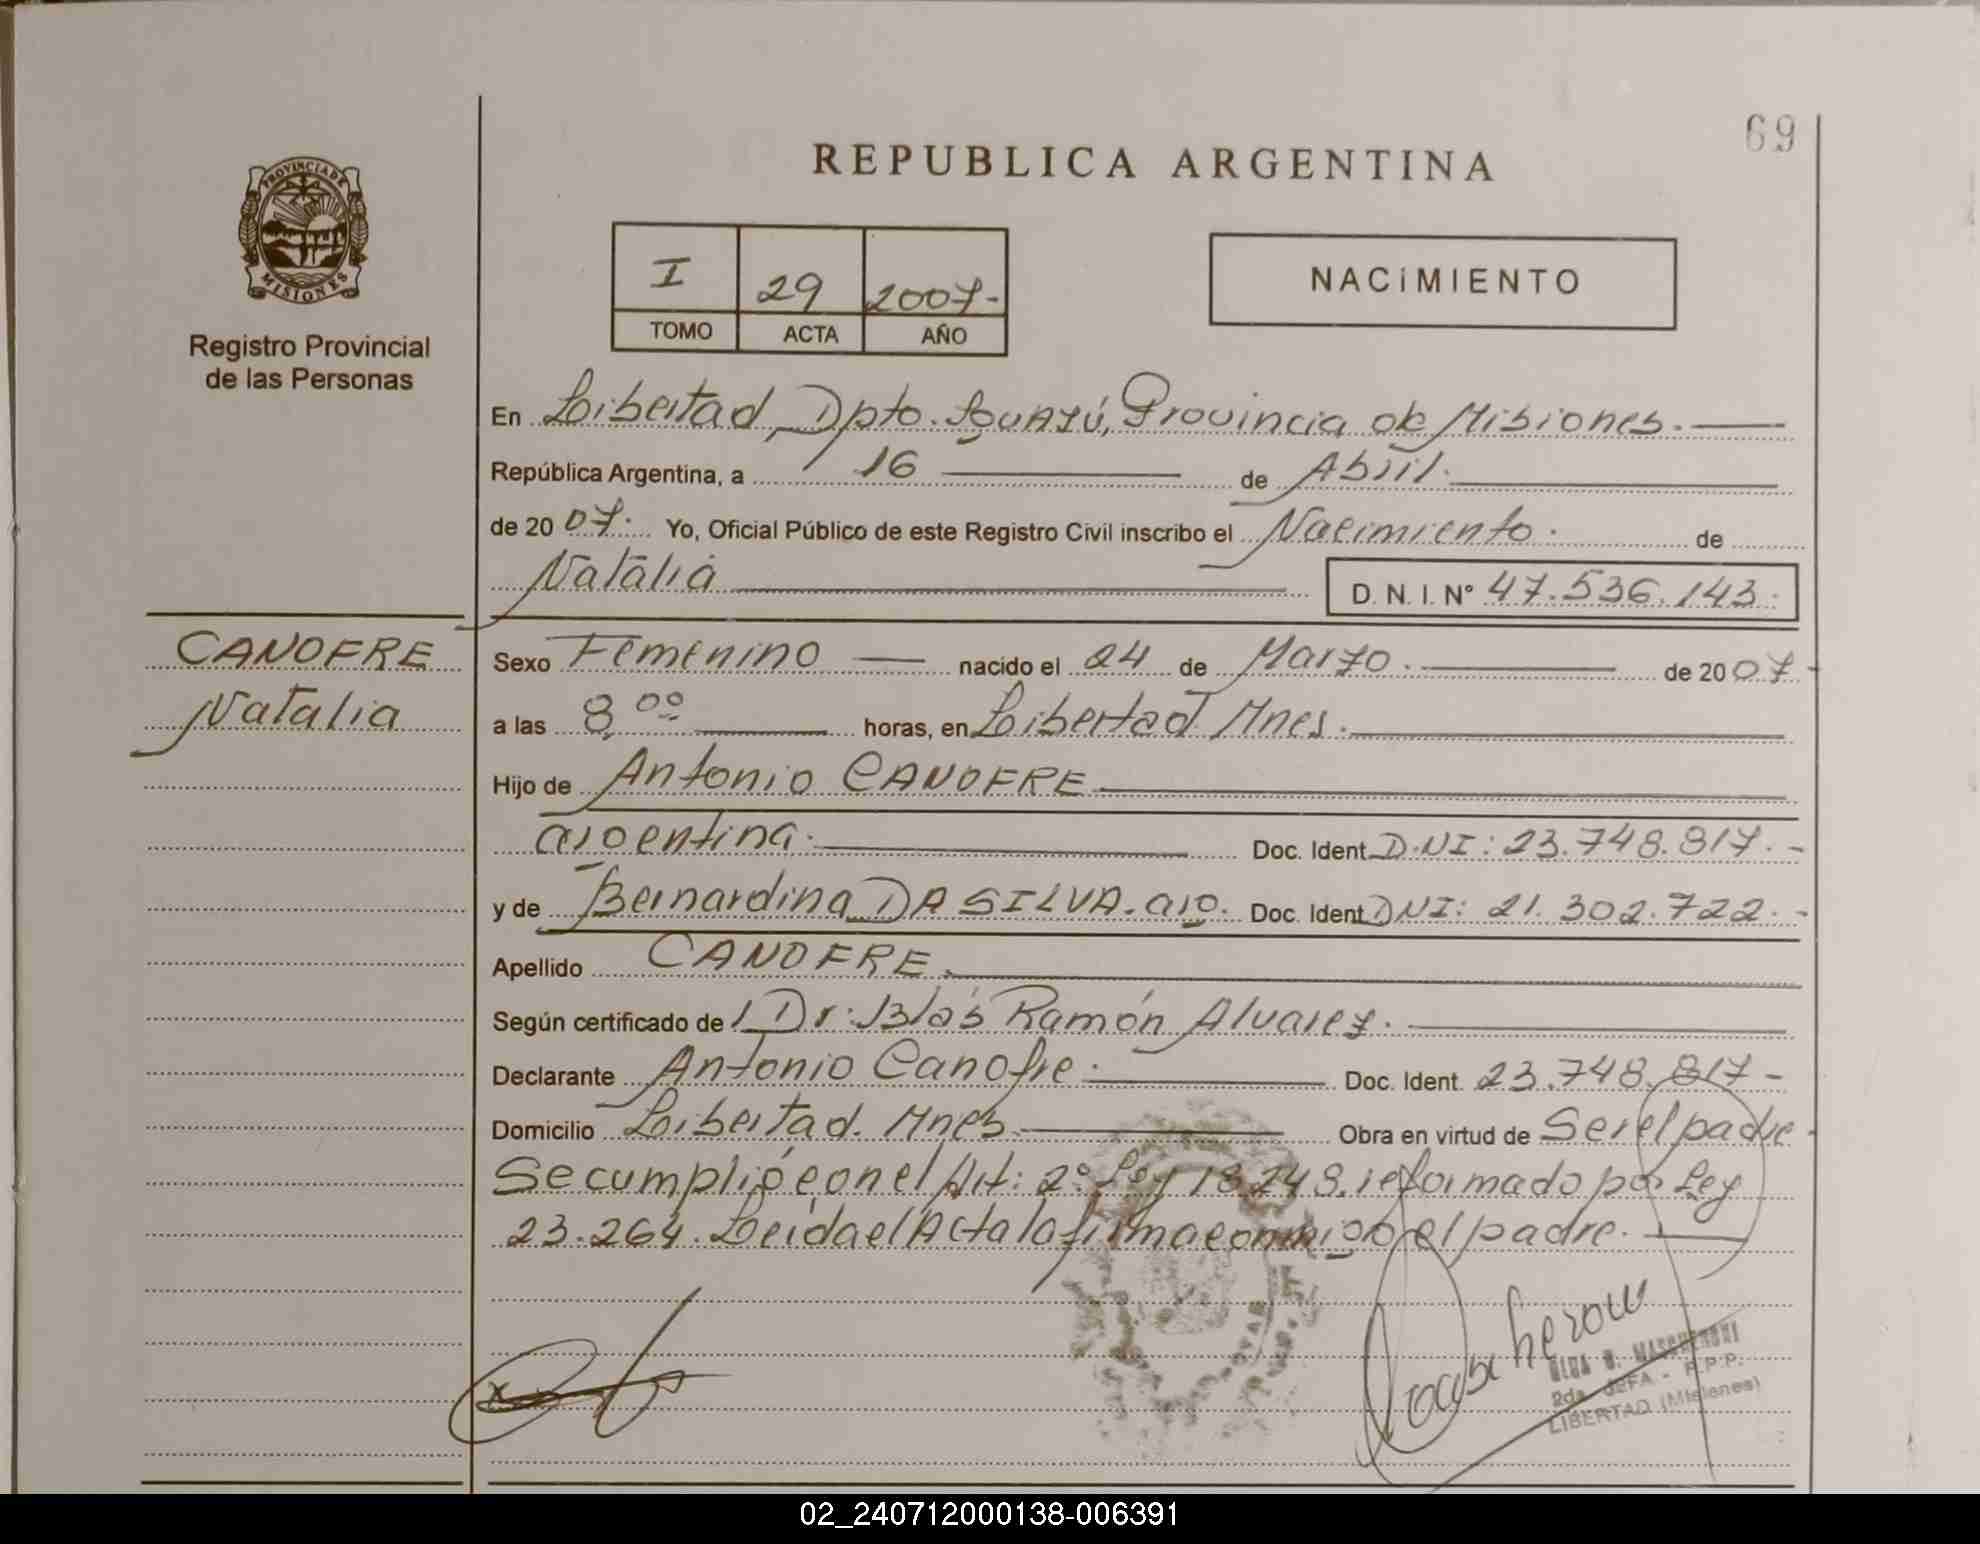 69
REPUBLICA ARGENTINA
PROVINCIA DE
MISIONES
Registro Provincial
de las Personas
I 29 2007-
TOMO ACTA AÑO
NACiMIENTO
En Libertad, Dpto. Iguazú, Provincia de Misiones.
República Argentina, a 16 de Abril.
de 20 07. Yo, Oficial Público de este Registro Civil inscribo el Nacimiento. de
Natalia D. N. I. N° 47.536.143.
CANOFRE
Natalia
Sexo Femenino nacido el 24 de Marzo. de 20 07-
a las 8,00 horas, en Libertad Mnes.
Hijo de Antonio CANOFRE
argentina. Doc. Ident. D.NI: 23.748.817.-
y de Bernardina DA SILVA. arg. Doc. Ident. DNI: 21.302.722.-
Apellido CANOFRE.
Según certificado de Dr: Blás Ramón Alvarez.
Declarante Antonio Canofre. Doc. Ident. 23.748.817-
Domicilio Libertad. Mnes Obra en virtud de Ser el padre.
Se cumplió con el Art: 2° Ley 18.248, reformado por Ley
23.264. Leída el Acta la firma conmigo el padre.
x
LIBERTAD (Misiones)
2da. JEFA - R.P.P.
02_240712000138-006391